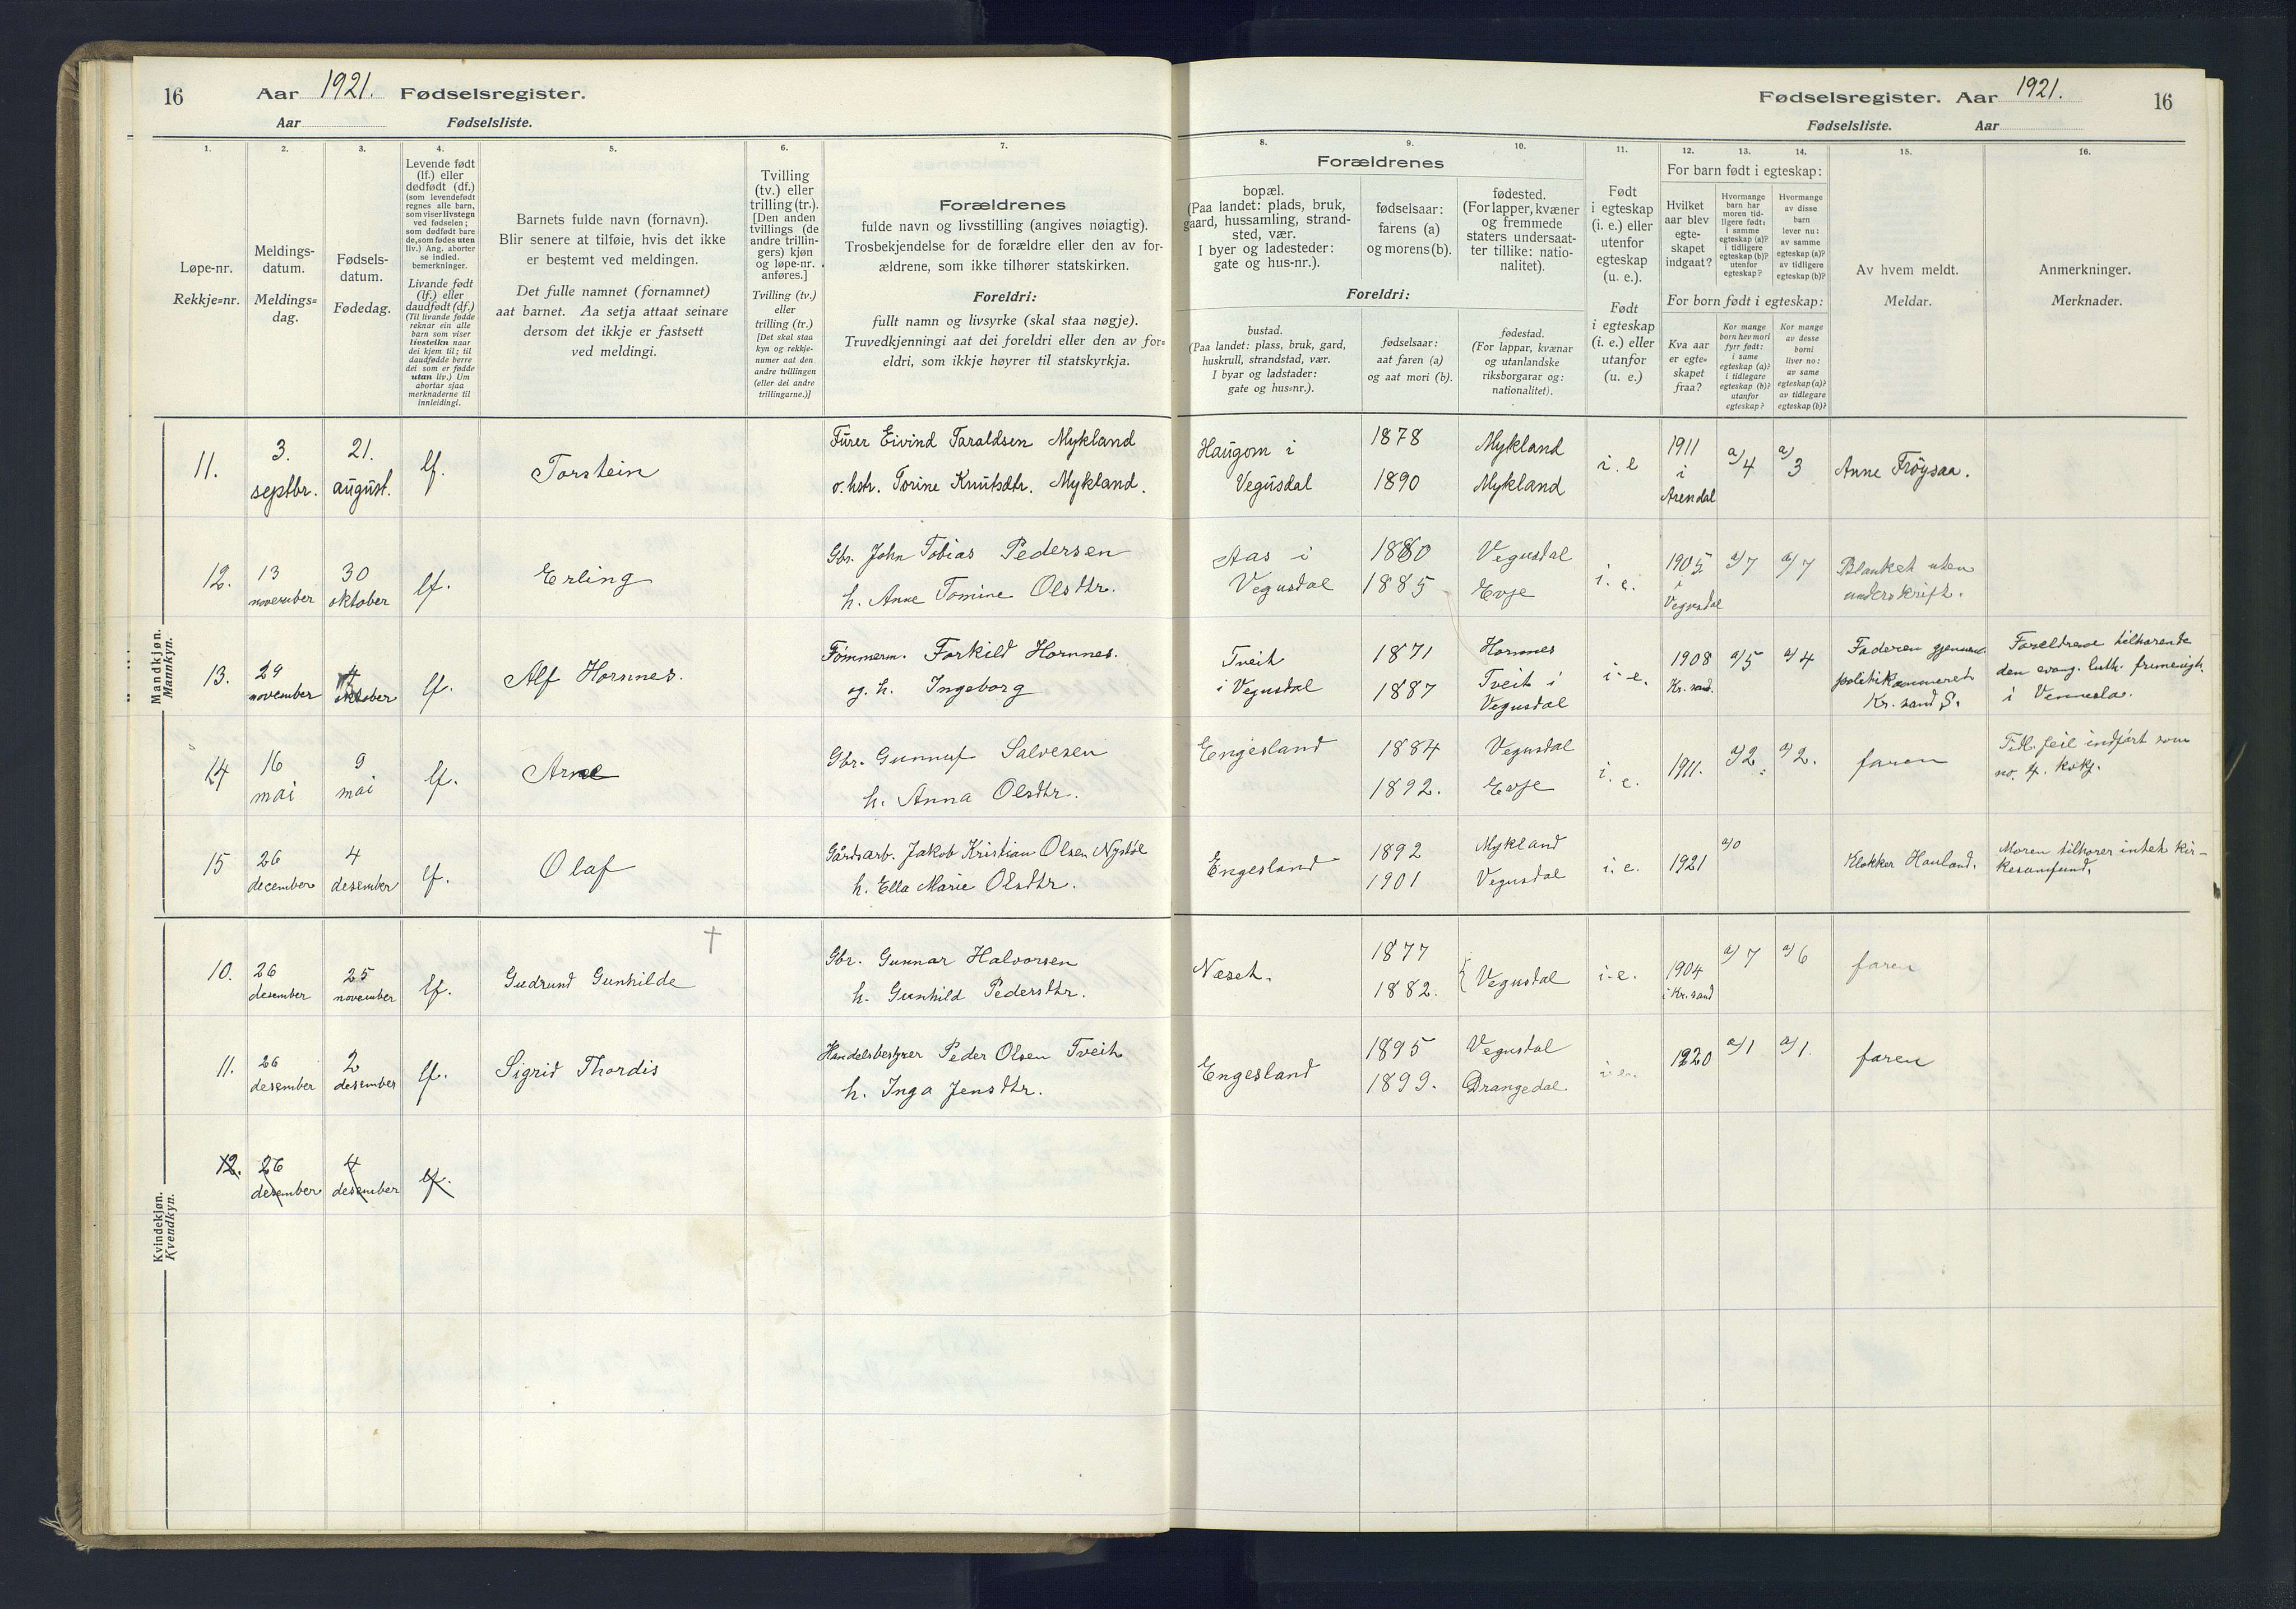 16 Aar 1921. Fødselsregister.
Aar Fødselsliste.
Fødselsregister. Aar 1921. 16
Fødselsliste. Aar
1.
Løpe-nr.
Rekkje=nr.
2.
Meldings-
datum.
Meldings=
dag.
3.
Fødsels-
datum.
Fødedag.
4.
Levende født
(lf.) eller
dødfødt (df.)
(som levendefødt
regnes alle barn,
som viser livstegn
ved fødselen;
som dødfødt bare
de, som fødes uten
liv.) Ang. aborter
se indled.
bemerkninger.
Livande født
(lf.) eller
daudfødt (df.)
(Til livande fødde
reknar ein alle
barn som viser
livsteikn naar
dei kjem til; til
daudfødde berre
dei som er fødde
utan liv.) Um
abortar sjaa
merknaderne til
innleidingi.
5.
Barnets fulde navn (fornavn).
Blir senere at tilføie, hvis det ikke
er bestemt ved meldingen.
Det fulle namnet (fornamnet)
aat barnet. Aa setja attaat seinare
dersom det ikkje er fastsett
ved meldingi.
6.
Tvilling
(tv.) eller
trilling (tr.).
[Den anden
tvillings (de
andre trillin-
gers) kjøn
og løpe-nr.
anføres.]
Tvilling (tv.)
eller
trilling (tr.)
[Det skal staa
kyn og rekkje-
numer aat den
andre tvillingen
(eller dei andre
trillingarne.)]
7.
Forældrenes
fulde navn og livsstilling (angives nøiagtig).
Trosbekjendelse for de forældre eller den av for-
ældrene, som ikke tilhører statskirken.
Foreldri:
fullt namn og livsyrke (skal staa nøgje).
Truvedkjenningi aat dei foreldri eller den av for=
eldri, som ikkje høyrer til statskyrkja.
8.
Forældrenes
bopæl.
(Paa landet: plads, bruk,
gaard, hussamling, strand-
sted, vær.
I byer og ladesteder:
gate og hus-nr.).
Foreldri:
bustad.
(Paa landet: plass, bruk, gard,
huskrull, strandstad, vær.
I byar og ladstader:
gate og hus=nr.).
9.
fødselsaar:
farens (a)
og morens (b).
fødselsaar:
aat faren (a)
og aat mori (b).
10.
fødested.
(For lapper, kvæner
og fremmede
staters undersaat-
ter tillike: natio-
nalitet).
fødestad.
(For lappar, kvænar
og utanlandske
riksborgarar og:
nationalitet).
11.
Født
i egteskap
(i. e.) eller
utenfor
egteskap
(u. e.).
Født
i egteskap
(i. e.) eller
utanfor
(u. e.)
12.
13.
14.
For barn født i egteskap:
Hvilket
aar blev
egte-
skapet
indgaat?
Hvormange
barn har
moren tid-
ligere født:
i samme
egteskap (a)?
i tidligere
egteskap (b)?
utenfor
egteskap?
Hvormange
av disse
barn
lever nu:
av samme
egteskap (a)?
av tidligere
egteskap (b)?
For born født i egteskap:
Kva aar
er egte=
skapet
fraa?
Kor mange
born hev mori
fyrr født:
i same
egteskap (a)?
i tidlegare
egteskap (b)?
utanfor
egteskap?
Kor mange
av desse
borni
liver no:
av same
egteskap (a)?
av tidlegare
egteskap (b)?
15.
Av hvem meldt.
Meldar.
16.
Anmerkninger.
Merknader.
Mandkjøn.
Mannkyn.
11. 3. septbr. 21. august. lf. Torstein
Fürer Eivind Taraldsen Mykland
o. hstr. Torine Knutsdtr. Mykland.
Haugom i
Vegusdal
1878
1890
Mykland
Mykland
i. e
1911
i
Arendal
a/4 a/3 Anne Frøysaa.
12. 13 november 30 oktober lf. Erling
Gbr. John Tobias Pedersen
h. Anne Tomine Olsdtr.
Aas i
Vegusdal
1880
1885
Vegusdal
Evje
i. e.
1905
i
Vegusdal
a/7 a/7 Blanket uten
underskrift.
13. 29 november 4 oktober lf. Alf Hornnes.
Tømmerm. Torkild Hornnes.
og h. Ingeborg
Tveit
i Vegusdal
1871
1887
Hornnes
Tveit i
Vegusdal
i. e.
1908
Kr. sand.
a/5 a/4
Faderen gjennem
politikammeret
Kr. sand S.
Foreldrene tilhørende
den evang. luth. frimenigh.
i Vennesla.
14 16 mai 9 mai lf. Arne
Gbr. Gunnuf Salvesen
h. Anna Olsdtr.
Engesland
1884
1892.
Vegusdal
Evje
i. e.
1911. a/2. a/2. faren
feil indført som
no. 4.
15 26 december 4 desember lf. Olaf
Gårdsarb. Jakob Kristian Olsen Nystøl
h. Ella Marie Olsdtr.
Engesland
1892
1901
Mykland
Vegusdal
i. e.
1921 a/0 Klokker Hauland.
Moren tilhører intet kir-
kesamfund.
Kvindekjøn.
Kvendkyn.
10. 26 desember 25 november lf. Gudrund Gunhilde †
Gbr. Gunnar Halvorsen
h. Gunhild Pedersdtr.
Neset.
1877
1882.
Vegusdal
i. e.
1904
i Kr. sand
a/7 a/6 faren
11. 26 desember 2 desember lf. Sigrid Thordis
Handelsbestyrer Peder Olsen Tveit
h. Inga Jensdtr.
Engesland
1895
1899.
Vegusdal
Drangedal.
i. e.
1920 a/1 a/1. faren
12. 26 desember 4 desember lf.